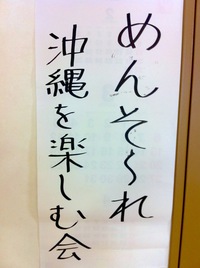 めんそ〜れ
沖縄を楽しむ会